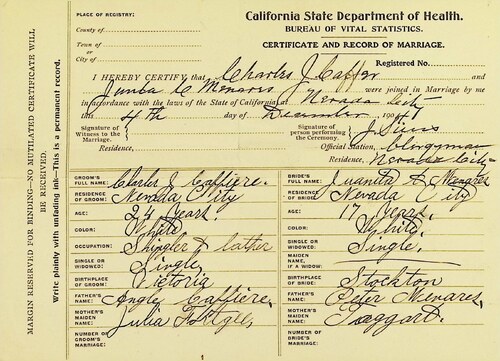 PLACE OF REGISTRY:
County of
Town of
or
City of
California State Department of Health.
BUREAU OF VITAL STATISTICS.
CERTIFICATE AND RECORD OF MARRIAGE.
Registered No.
I HEREBY CERTIFY that Charles J Caffier and
Junta C Menares were joined in Marriage by me
in accordance with the laws of the State of California at Nevada City
this 4th day of December 190
Signature of Witness to the Marriage.
Residence,
Signature of person performing the Ceremony. J Sims
Official Station, Clergyman
Residence, Nevada City
MARGIN RESERVED FOR BINDING—NO MUTILATED CERTIFICATE WILL BE RECEIVED.
Write plainly with unfading ink—This is a permanent record.
GROOM'S FULL NAME: Charles J Caffiere.
RESIDENCE OF GROOM: Nevada City
AGE: 24 Years.
COLOR: White
OCCUPATION: Shingler & lather
SINGLE OR WIDOWED: Single
BIRTHPLACE OF GROOM: Victoria
FATHER'S NAME: Angle Caffiere.
MOTHER'S MAIDEN NAME: Julia
NUMBER OF GROOM'S MARRIAGE:
BRIDE'S FULL NAME: Juanita Menares
RESIDENCE OF BRIDE: Nevada City
AGE: 17 Years.
COLOR: White.
SINGLE OR WIDOWED: Single.
MAIDEN NAME, IF A WIDOW:
BIRTHPLACE OF BRIDE: Stockton
FATHER'S NAME: Peter Menares
MOTHER'S MAIDEN NAME: Taggart.
NUMBER OF BRIDE'S MARRIAGE:
1